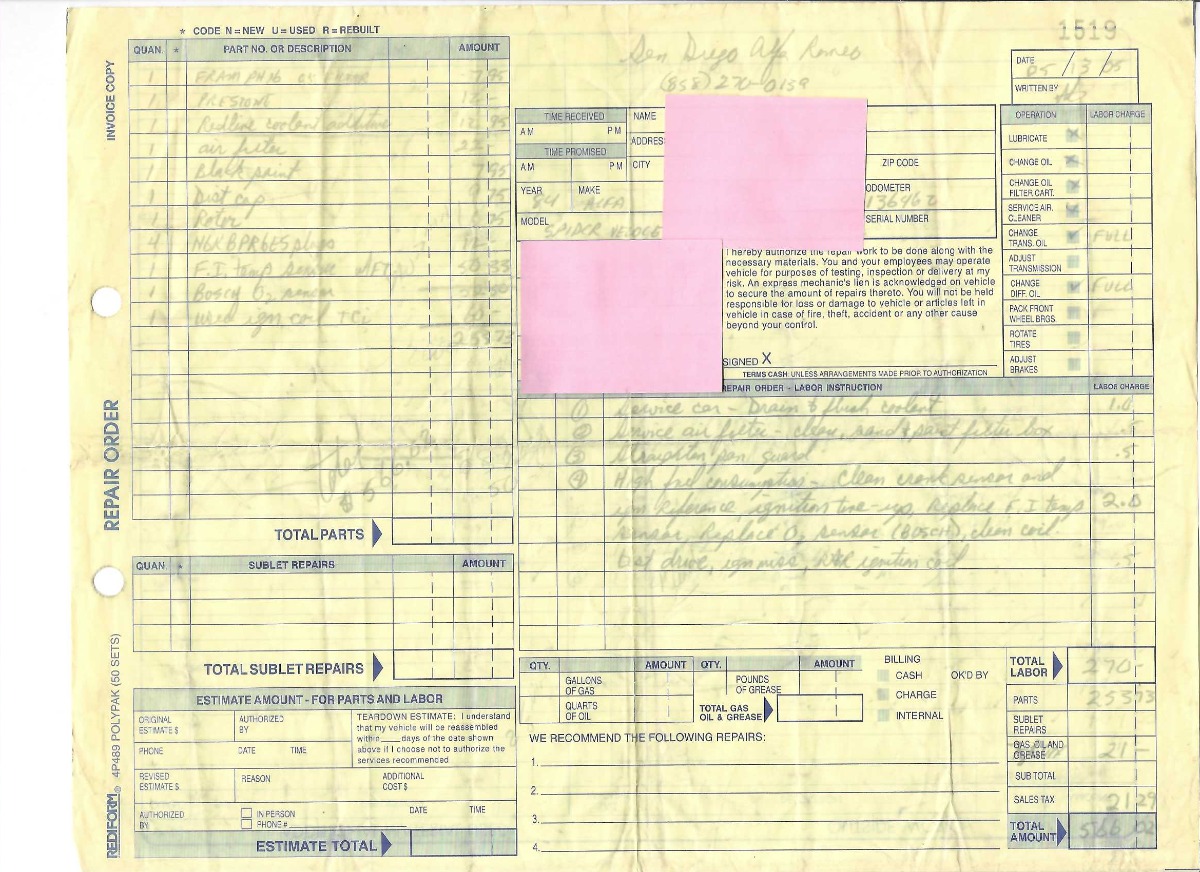 * CODE N = NEW U = USED R = REBUILT
1519
San Diego Alfa Romeo
(858) 270-0159
DATE 05/13/05
WRITTEN BY
INVOICE COPY
REPAIR ORDER
REDIFORM® 4P489 POLYPAK (50 SETS)
QUAN. * PART NO. OR DESCRIPTION AMOUNT
1 FRAM PH16 7.95
1 PRESTONE 12 -
1 Redline coolant additive 12.95
1 air filter 22 -
1 Black paint 7.95
1 Dist cap 9.75
1 Rotor 6.75
4 NGK BPR6ES plugs 12 -
1 F.I. temp sensor 50.33
1 BOSCH O2 sensor
1 Used ign coil TCi 60 -
253 73
TOTAL PARTS
QUAN * SUBLET REPAIRS AMOUNT
TOTAL SUBLET REPAIRS
ESTIMATE AMOUNT - FOR PARTS AND LABOR
ORIGINAL ESTIMATE $
AUTHORIZED BY
TEARDOWN ESTIMATE: I understand
that my vehicle will be reassembled
within____days of the date shown
above if I choose not to authorize the
services recommended
PHONE DATE TIME
REVISED ESTIMATE $
REASON
ADDITIONAL COST $
AUTHORIZED BY
IN PERSON
PHONE #
DATE TIME
ESTIMATE TOTAL
TIME RECEIVED
AM PM
TIME PROMISED
AM PM
NAME
ADDRES
CITY
ZIP CODE
YEAR 84 MAKE ALFA
ODOMETER
136962
MODEL SPIDER VELOCE
SERIAL NUMBER
I hereby authorize the repair work to be done along with the
necessary materials. You and your employees may operate
vehicle for purposes of testing, inspection or delivery at my
risk. An express mechanic's lien is acknowledged on vehicle
to secure the amount of repairs thereto. You will not be held
responsible for loss or damage to vehicle or articles left in
vehicle in case of fire, theft, accident or any other cause
beyond your control.
SIGNED X
TERMS CASH UNLESS ARRANGEMENTS MADE PRIOR TO AUTHORIZATION
OPERATION LABOR CHARGE
LUBRICATE
CHANGE OIL
CHANGE OIL FILTER CART.
SERVICE AIR CLEANER
CHANGE TRANS. OIL FULL
ADJUST TRANSMISSION
CHANGE DIFF. OIL FULL
PACK FRONT WHEEL BRGS.
ROTATE TIRES
ADJUST BRAKES
REPAIR ORDER - LABOR INSTRUCTION LABOR CHARGE
① Service car - Drain & flush coolant 1.0
② Service air filter - clean, sand & paint filter box .5
③ Straighten pan guard .5
④ High fuel consumption - Clean crank sensor and
rpm reference, ignition tune-up, Replace F.I temp 2.0
sensor, Replace O2 sensor (BOSCH), clean coil.
test drive, ign miss, R&R ignition coil .5
QTY. AMOUNT QTY. AMOUNT
GALLONS OF GAS
POUNDS OF GREASE
QUARTS OF OIL
TOTAL GAS OIL & GREASE
BILLING
CASH OK'D BY
CHARGE
INTERNAL
WE RECOMMEND THE FOLLOWING REPAIRS:
1.
2.
3.
4.
TOTAL LABOR 270 -
PARTS 253 73
SUBLET REPAIRS
GAS, OIL AND GREASE 21 -
SUB TOTAL
SALES TAX 21 29
TOTAL AMOUNT 566 02